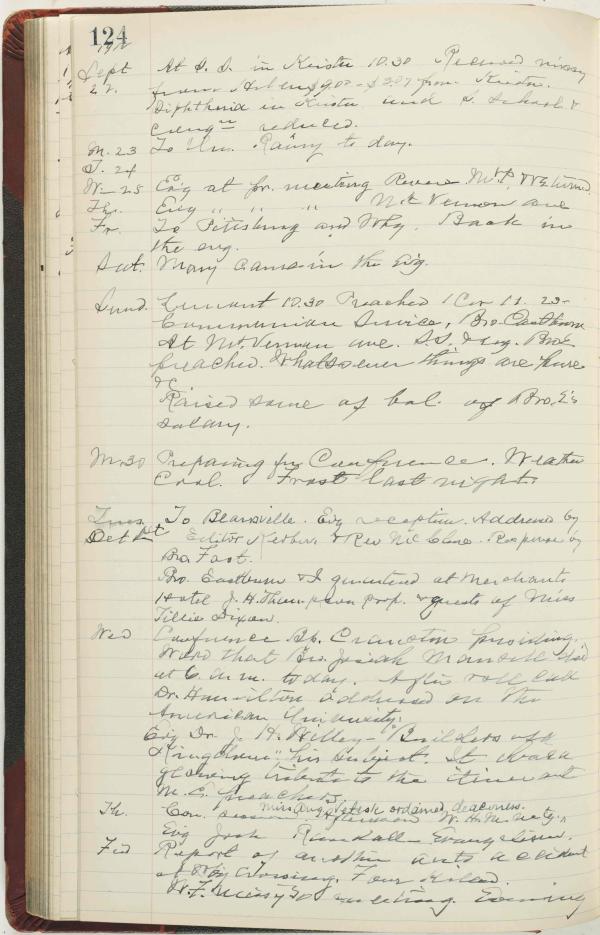 124
Sept At S. S. in Keister 10.30 Received missy
22. from
Diphtheria in Keister and S. School &
reduced.
M. 23 To Wm. to day.
T. 24
W. 25 Evg at pr. meeting
Th. Evg " " " Mt Vernon ave
Fr. To Pittsburg and Why. Back in
the evg.
Sat. Mary came in the Evg.
Sund. 10.30 Preached 1 Cor 11. 23-
Communion Service, Bro. Eastburn
At Mt. Vernon ave. S.S. & evg. Bro E
preached. Whatsoever things are pure
&c
Raised some of bal. of Bro. E's
salary.
M. 30 Preparing for Conference. Weather
Cool. Frost last night.
Tues. To Blairsville. Evg reception. Address by
Oct 1st Editor & Rev Mc Clure. Response by
Bro.
Bro. Eastburn & I quartered at Merchants
Hotel J. H. Thompson prop. & guests of Miss
Tillie Dixon.
Wed Conference Bp. Cranston presiding.
Word that Bro. Josiah Mansell died
at 6 a.m. to day. After roll call
Dr. Hamilton addressed on the
American University.
Evg Dr. J. H. Willey - "Builders of
Kingdom", his subject. It was a
glowing tribute to the itinerant
M. E. preacher.
Miss Ang. ordained deaconess.
Th. Con. session. Afternoon W. H. M. Socty.
Evg Josh Evangelism.
Fri Report of another auto accident
at Crossing. Four killed.
W. F. Missy So meeting. Evening